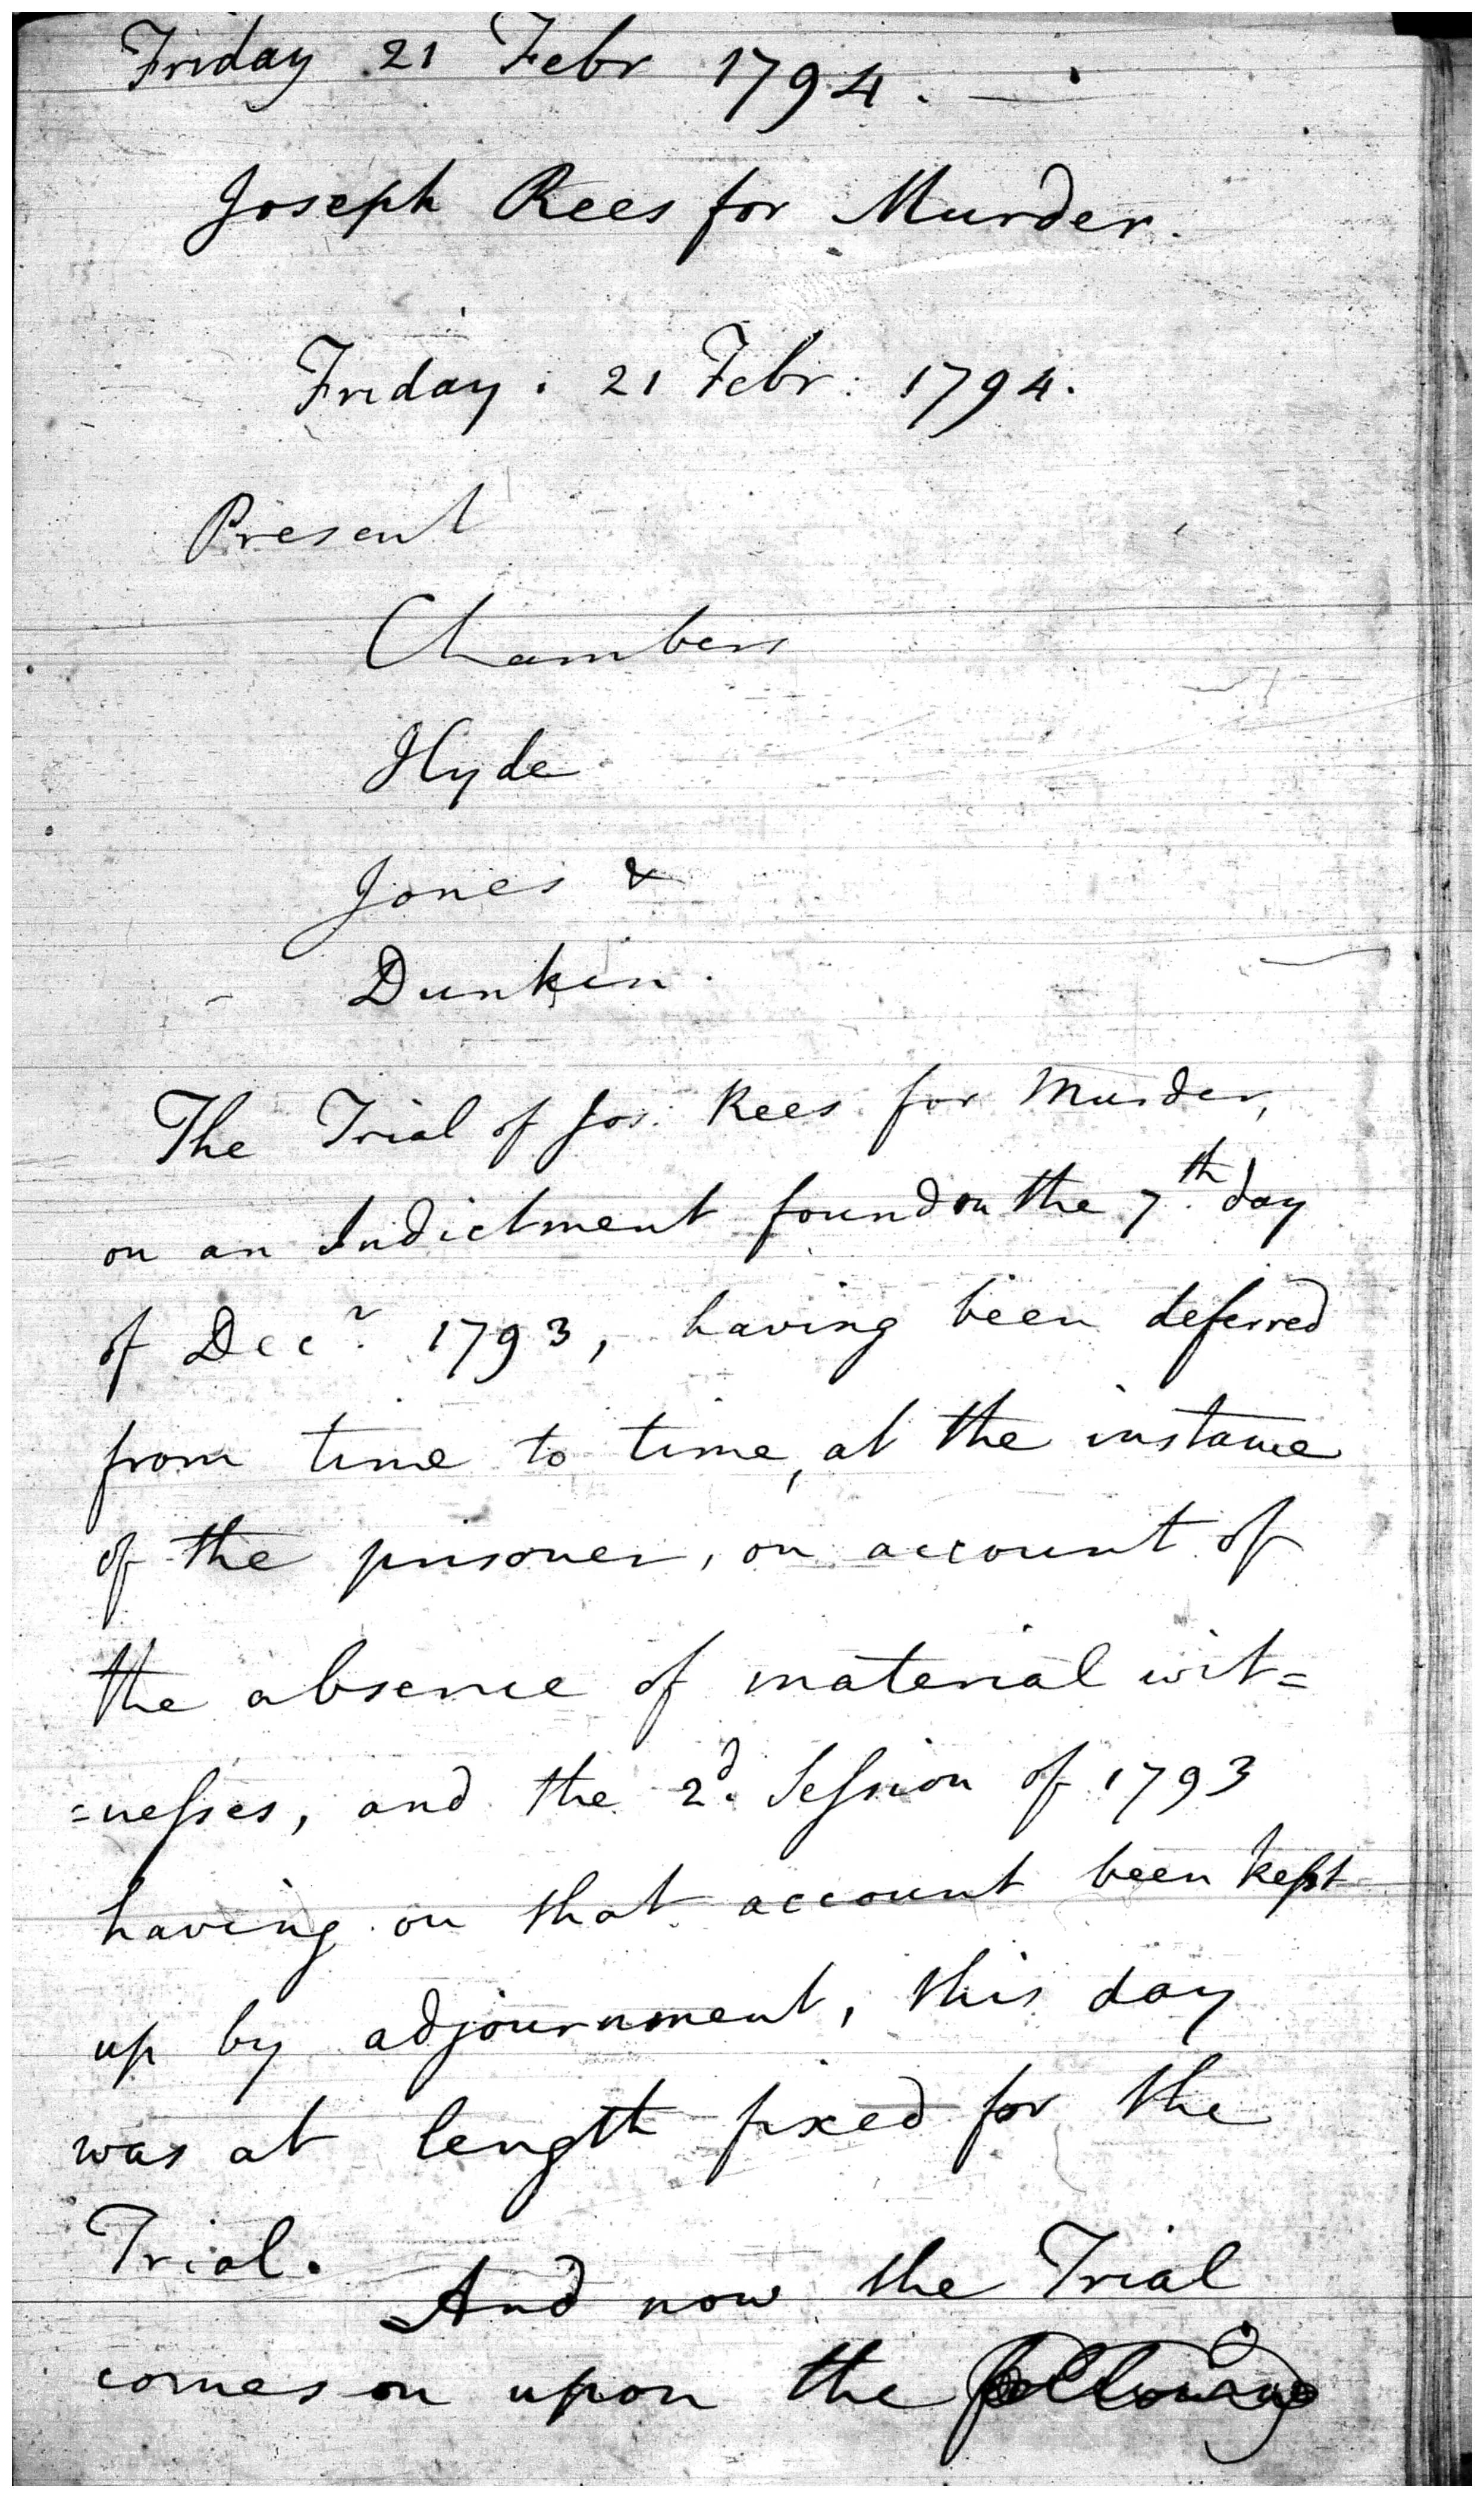 Friday 21 Febr 1794. —
Joseph Rees for Murder.
Friday. 21 Febr. 1794.
Present
Chambers
Hyde
Jones &
Dunkin.
The Trial of Jos: Rees for Murder,
on an Indictment found on the 7.th day
of Dec.r 1793, having been deferred
from time to time, at the instance
of the prisoner, on account of
the absence of material wit=
=nesses, and the 2.d Session of 1793
having on that account been kept
up by adjournment, this day
was at length fixed for the
Trial.
And now the Trial
comes on upon the following